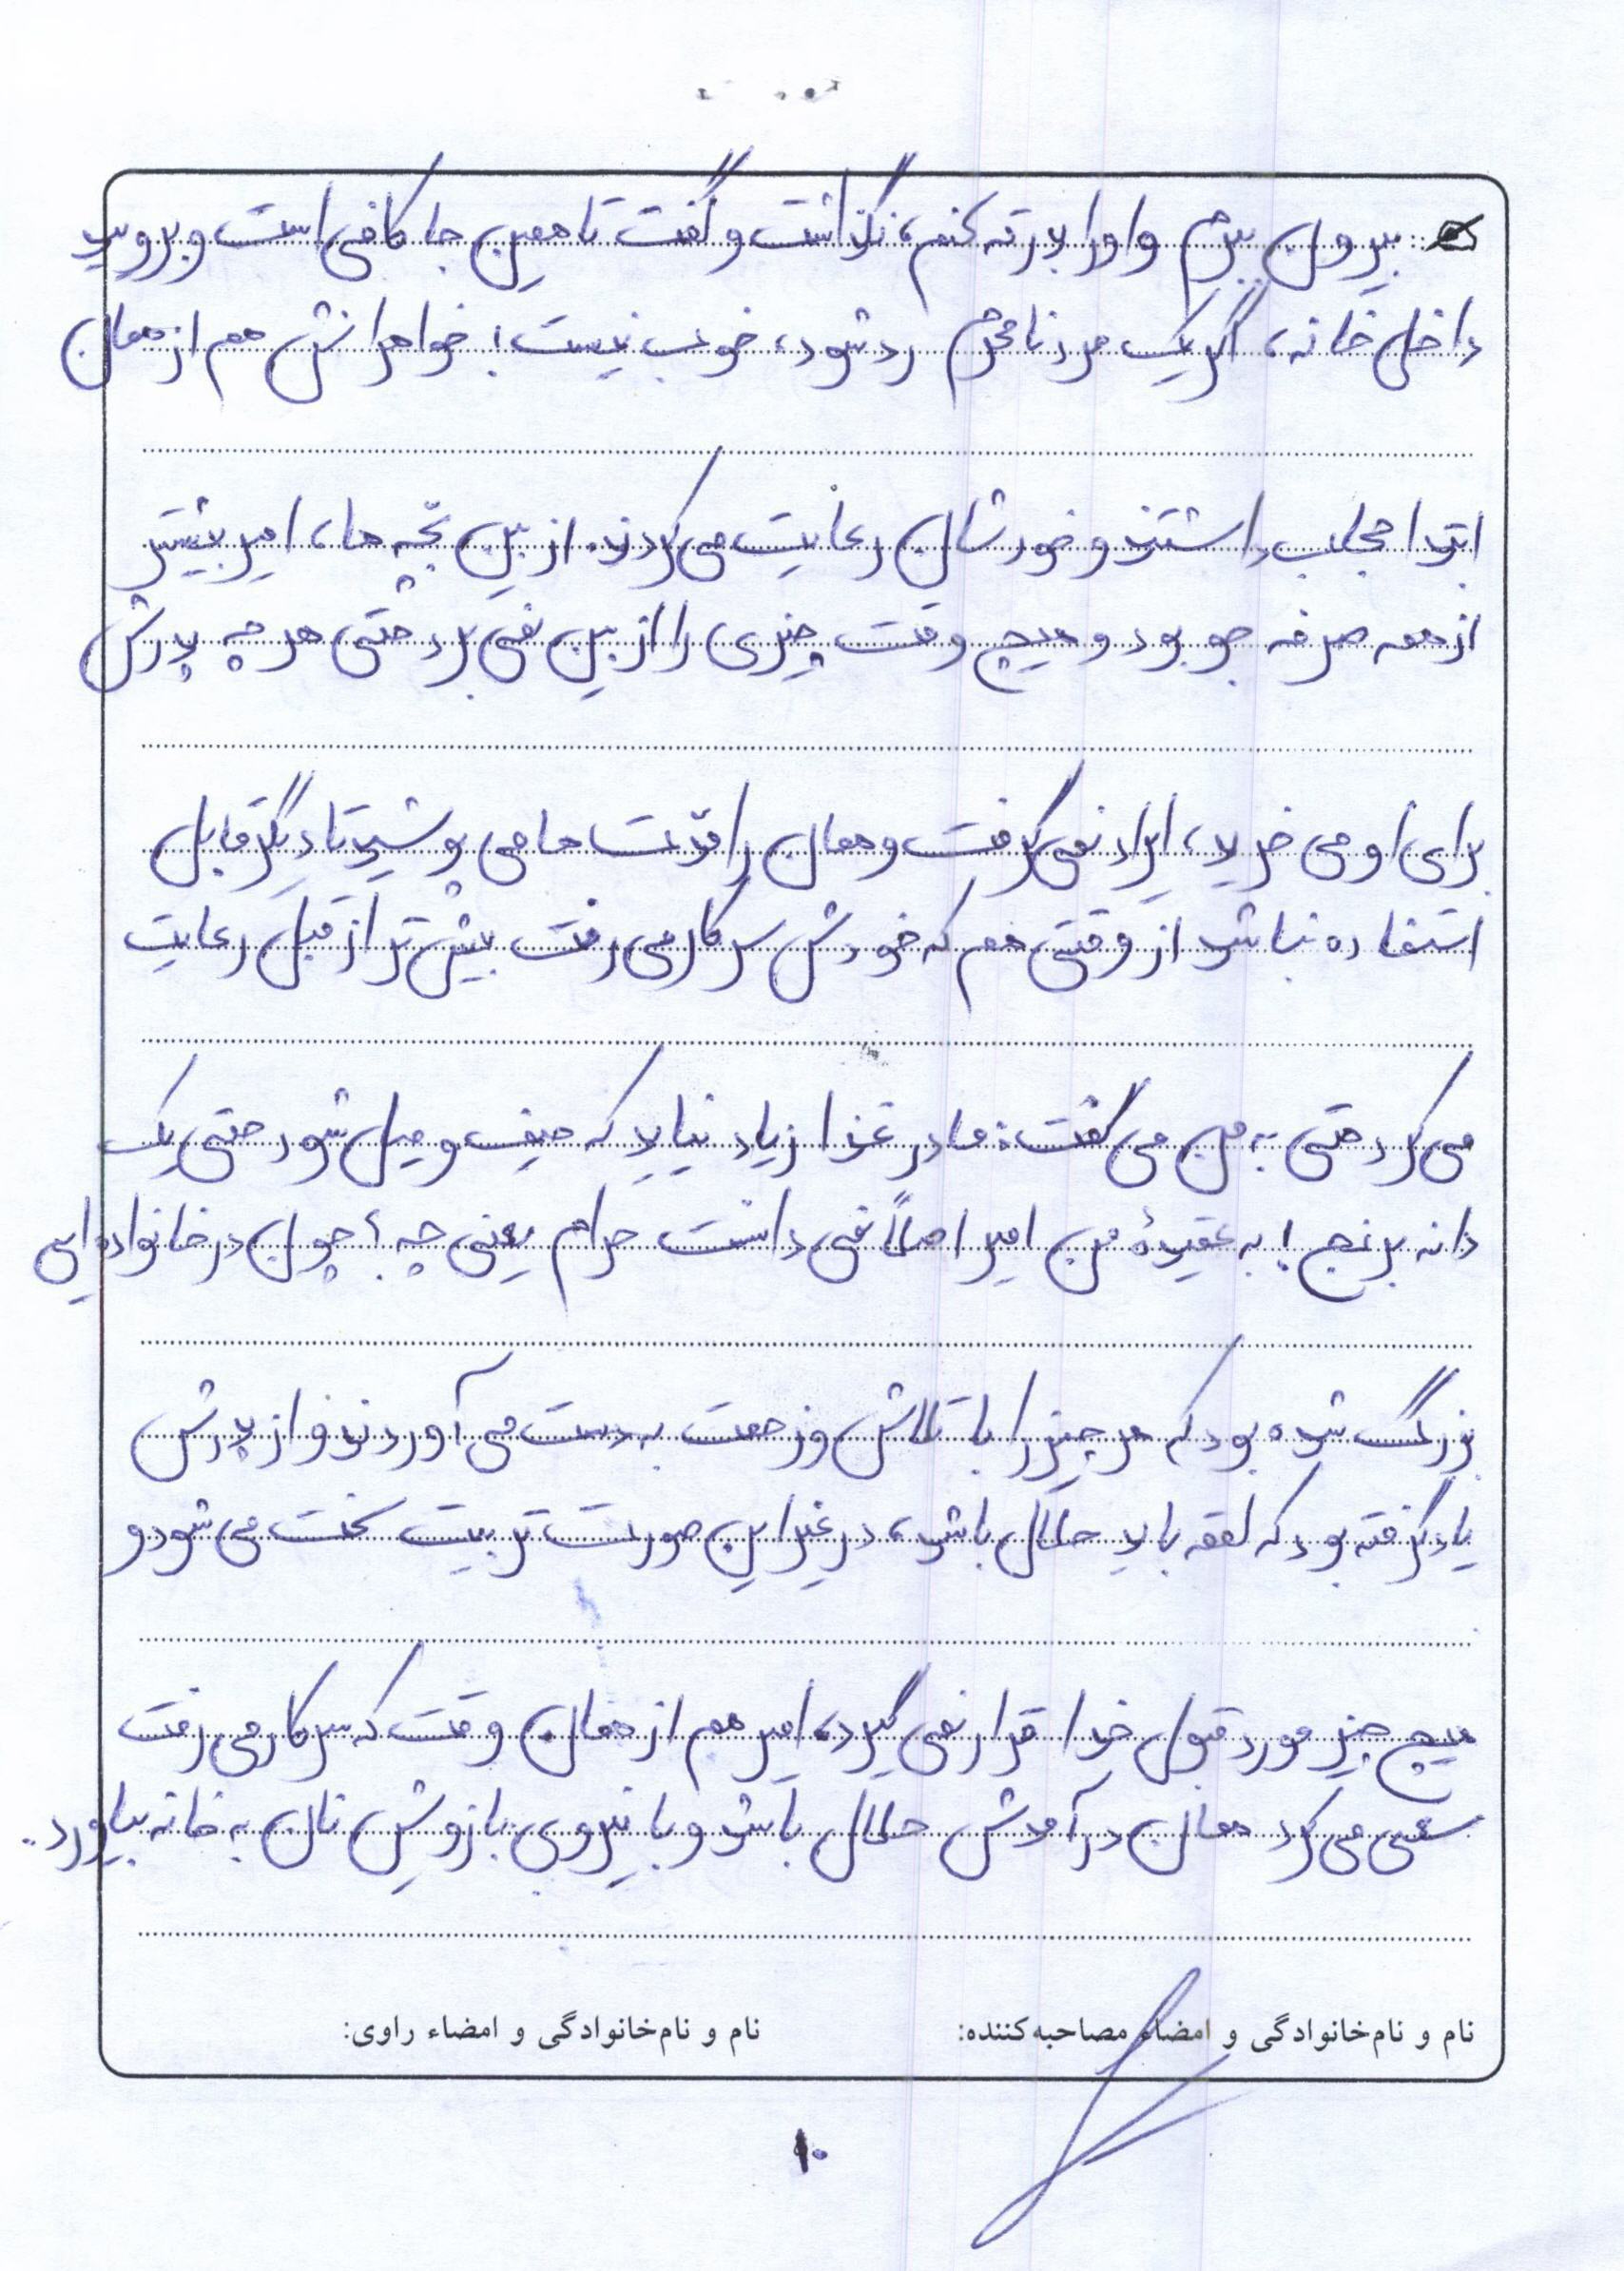 بیرون ببرم و او را بدرقه کنم، نگذاشت و گفت تا همین جا کافی است و بروید
داخل خانه، اگر یک مرد نامحرم رد شود، خوب نیست! خواهرانش هم از همان
ابتدا حجاب داشتند و خودشان رعایت می‌کردند. از بین بچّه‌ها، امیر بیشتر
از همه صرفه جو بود و هیچ وقت چیزی را از بین نمی‌برد حتی هر چه پدرش
برای او می‌خرید، ایراد نمی‌گرفت و همان را مدّت‌ها می‌پوشید تا دیگر قابل
استفاده نباشد از وقتی هم که خودش سر کار می‌رفت بیش‌تر از قبل رعایت
می‌کرد حتی به من می‌گفت: مادر غذا زیاد نیاید که حیف و میل شود حتی یک
دانه برنج! به عقیدهٔ من امیر اصلاً نمی‌دانست حرام یعنی چه؟ چون در خانواده‌ایی
بزرگ شده بود که هر چیز را با تلاش و زحمت به دست می‌آوردند و از پدرش
یاد گرفته بود که لقمه باید حلال باشد، در غیر این صورت تربیت سخت می‌شود و
هیچ چیز مورد قبول خدا قرار نمی‌گیرد، امیر هم از همان وقت که سر کار می‌رفت
سعی می‌کرد همان درآمدش حلال باشد و با نیروی بازویش نان به خانه بیاورد.
نام و نام‌خانوادگی و امضاء مصاحبه‌کننده: نام و نام‌خانوادگی و امضاء راوی:
۱۰